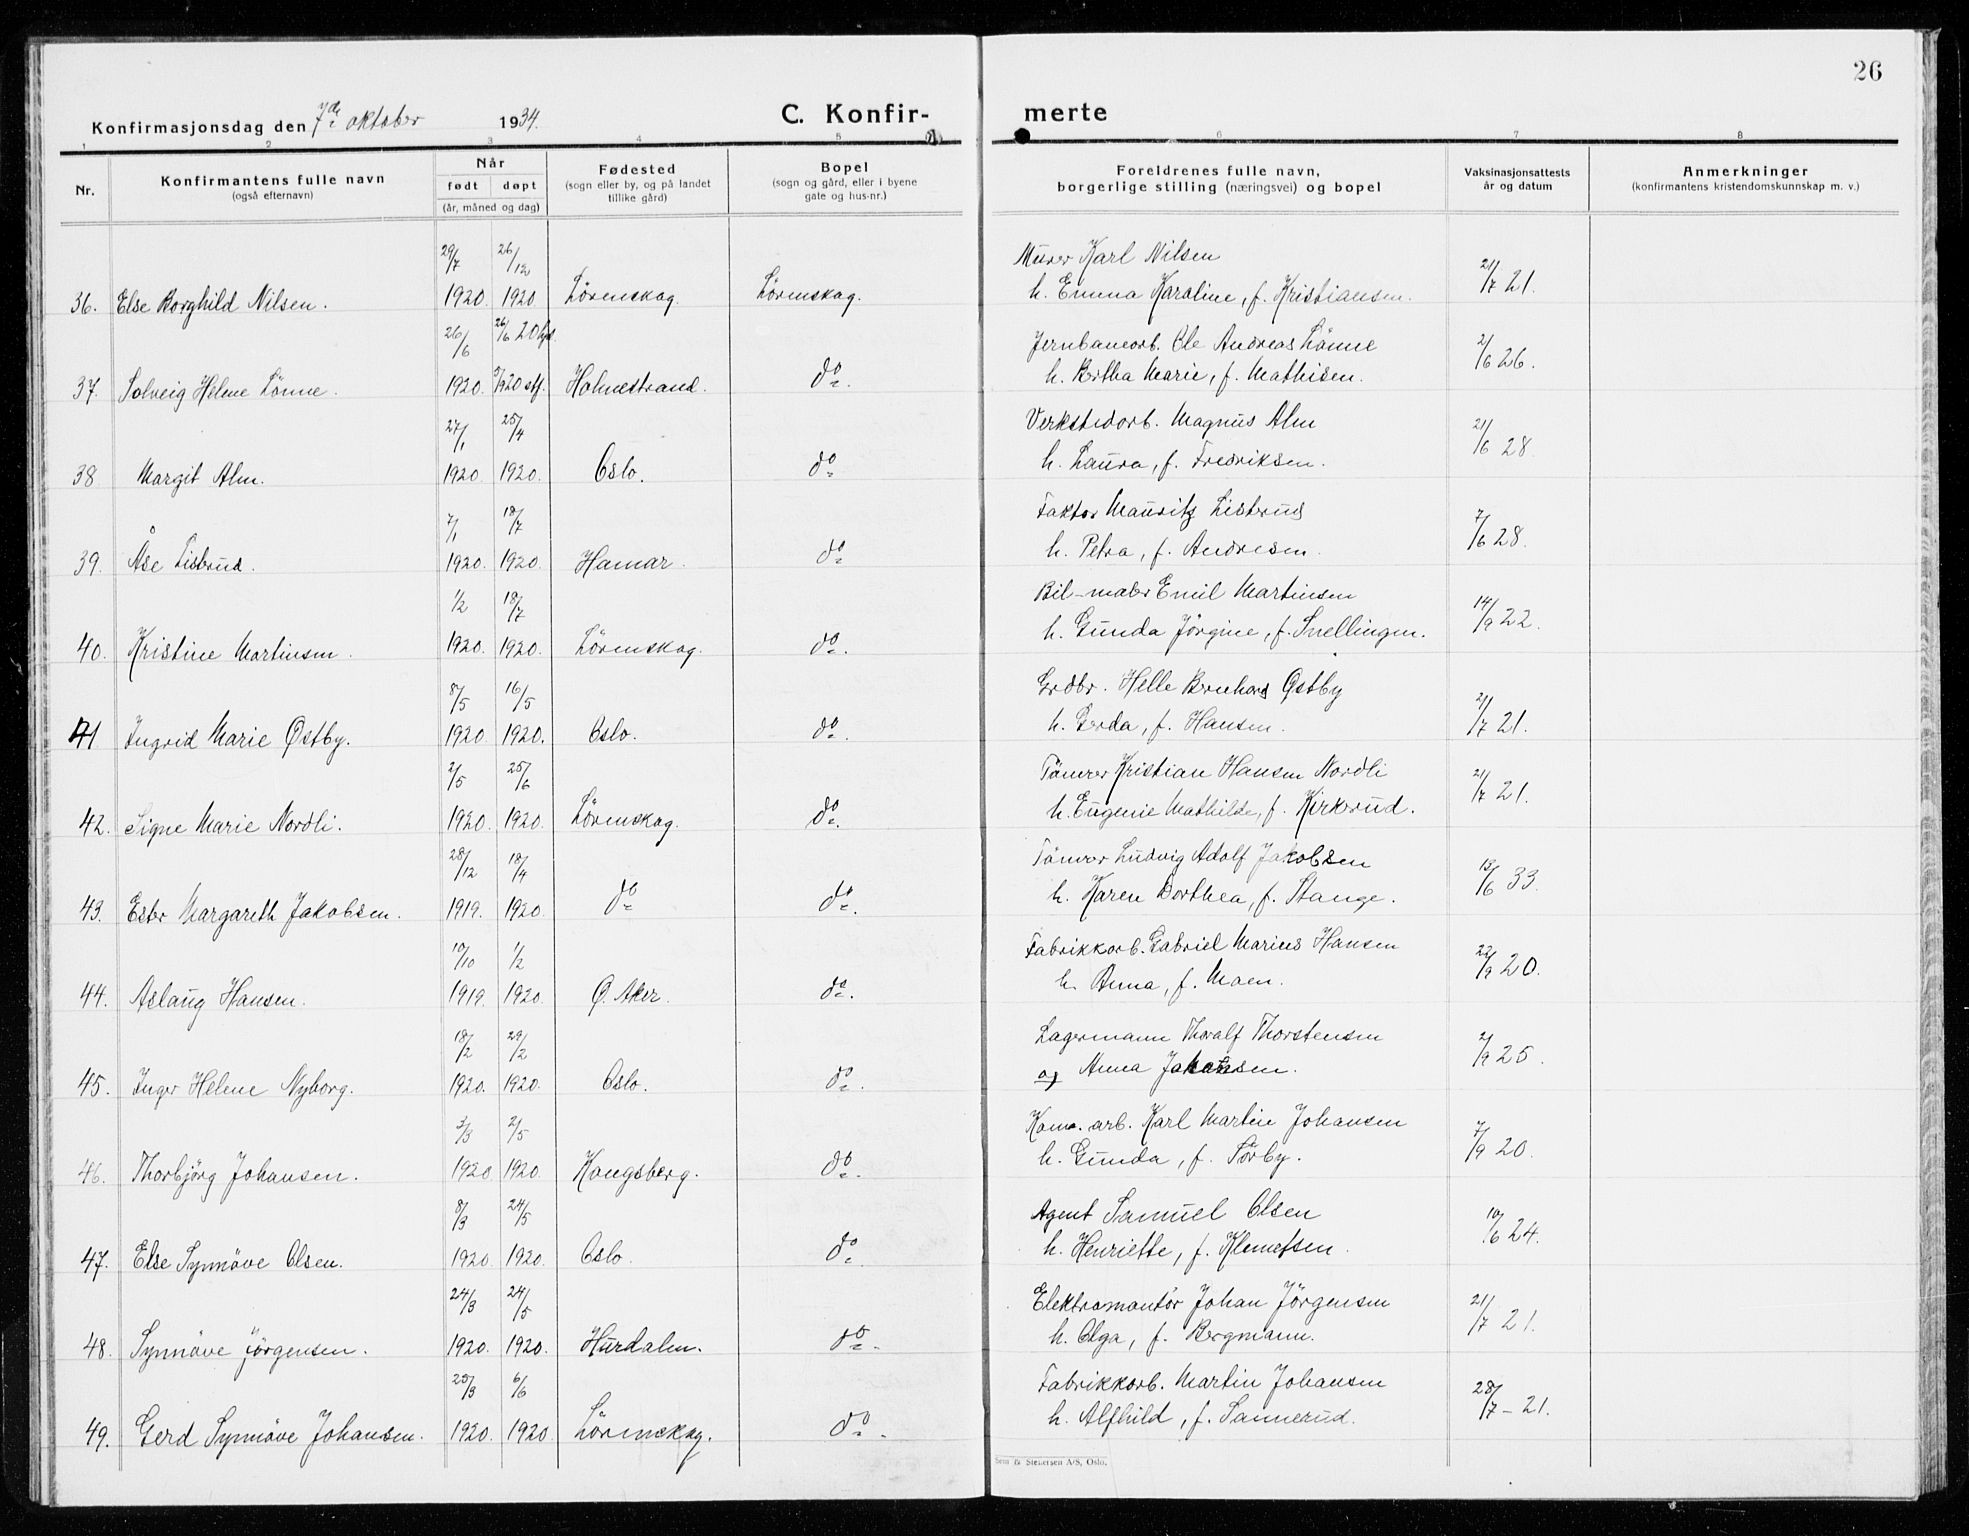 26
Konfirmasjonsdag den 7de oktober 1934.
C. Konfir-merte
1 2 3 4 5 6 7 8
Nr. Konfirmantens fulle navn (også efternavn) Når født døpt (år, måned og dag) Fødested (sogn eller by, og på landet tillike gård) Bopel (sogn og gård, eller i byene gate og hus-nr.) Foreldrenes fulle navn, borgerlige stilling (næringsvei) og bopel Vaksinasjonsattests år og datum Anmerkninger (konfirmantens kristendomskunnskap m. v.)
29/7 26/12 Murer Karl Nilsen
36. Else Borghild Nilsen. 1920. 1920 Lörenskog. Lörenskog. h. Emma Karoline, f. Kristiansen. 21/7 21.
26/6 26/6 20 hjd. Jernbanearb. Ole Andreas Lönne
37. Solveig Helene Lönne. 1920. 5/9 20 stf. Holmestrand. do. h. Bertha Marie, f. Mathisen. 2/6 26.
27/1 25/4 Verkstedarb. Magnus Alm
38 Margit Alm. 1920 1920. Oslo. do h. Laura, f. Fredriksen. 21/6 28.
7/1 18/7 Faktor Mauritz Listerud
39. Åse Listerud. 1920. 1920. Hamar. do h. Petra, f. Andresen. 7/6 28.
1/2 18/7 Bil-maler Emil Martinsen
40. Kristine Martinsen. 1920. 1920. Lörenskog. do. h. Gunda Jörgine, f. Snellingen. 14/9 22.
8/5 16/5 Grdbr. Helle Bernhard Østby
41 Ingrid Marie Østby. 1920. 1920. Oslo. do. h. Gerda, f. Hansen. 21/7 21.
2/5 25/6 Tömrer Kristian Hansen Nordli
42. Signe Marie Nordli. 1920. 1920. Lörenskog. do. h. Eugenie Mathilde, f. Kirkerud. 21/7 21.
28/12 18/4 Tömrer Ludvig Adolf Jakobsen
43. Ester Margareth Jakobsen. 1919. 1920. do do. h. Karen Dorthea, f. Stange. 13/6 33.
10/10 1/2 Fabrikkarb. Gabriel Marius Hansen
44. Aslaug Hansen. 1919. 1920. Ø. Aker. do. h. Anna, f. Moen. 22/9 20.
18/2 29/2 Lagermann Thoralf Thorstensen
45. Inger Helene Nyborg. 1920. 1920. Oslo. do. og Anna 2/9 25.
3/3 2/5 Komm. arb. Karl Martin Johansen
46. Thorbjörg Johansen. 1920. 1920. Kongsberg. do. h. Gunda, f. Sörby. 7/9 20.
8/3 24/5 Agent Samuel Olsen
47. Else Synnöve Olsen. 1920. 1920. Oslo. do. h. Henriette, f. Klemetsen. 10/6 24.
24/3 24/5 Elektromontör Johan Jörgensen
48. Synnöve Jörgensen. 1920. 1920. Hurdalen. do. h. Olga, f. Bergmann. 21/7 21.
25/3 6/6 Fabrikkarb. Martin Johansen
49. Gerd Synnöve Johansen. 1920. 1920. Lörenskog. do. h. Alfhild, f. Sannerud. 28/7 - 21.
Sem & Stenersen A/S, Oslo.